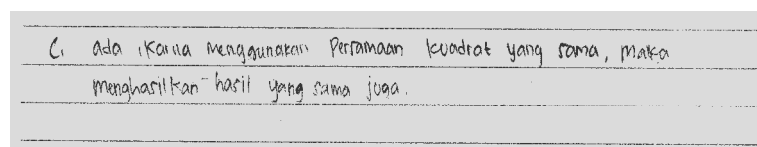 C. ada, karna menggunakan Persamaan kuadrat yang sama, maka
menghasilkan hasil yang sama juga.